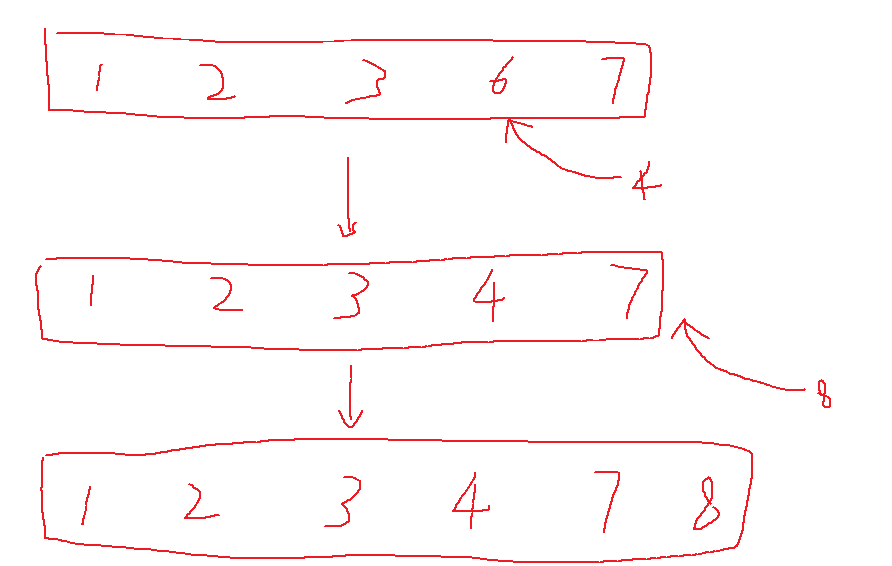 1 2 3 6 7
4
1 2 3 4 7
8
1 2 3 4 7 8